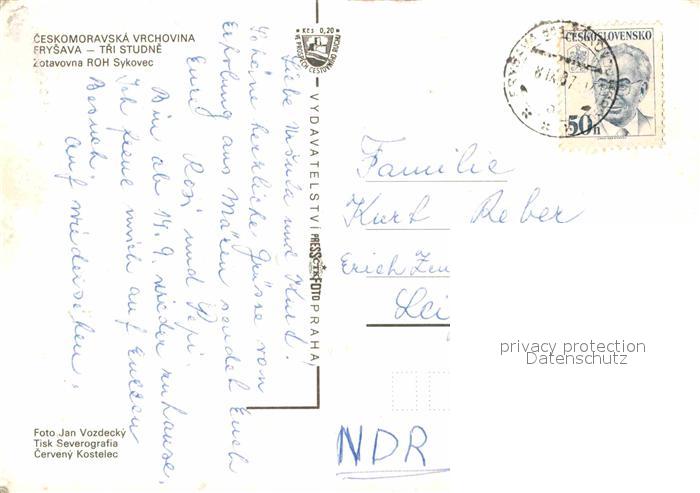 ČESKOMORAVSKÁ VRCHOVINA
FRYŠAVA — TŘI STUDNĚ
Zotavovna ROH Sykovec
Kčs 0,20
VE PROSPĚCH CESTOVNÍHO RUCHU
ČESKOSLOVENSKO
50 h
Liebe Uršula und Kurt!
Schöne herzliche Grüsse von
Erholung aus Mären sendet Euch
Eure Rosi und Pepi.
Bin ab 14. 9. wieder zu hause.
Ich freue mich auf Eueren
Besuch,
auf wiedersehen!
VYDAVATELSTVÍ PRESSFOTO PRAHA
Familie
Kurt Reber
Erich Zei
Lei
NDR
privacy protection
Datenschutz
Foto Jan Vozdecký
Tisk Severografia
Červený Kostelec